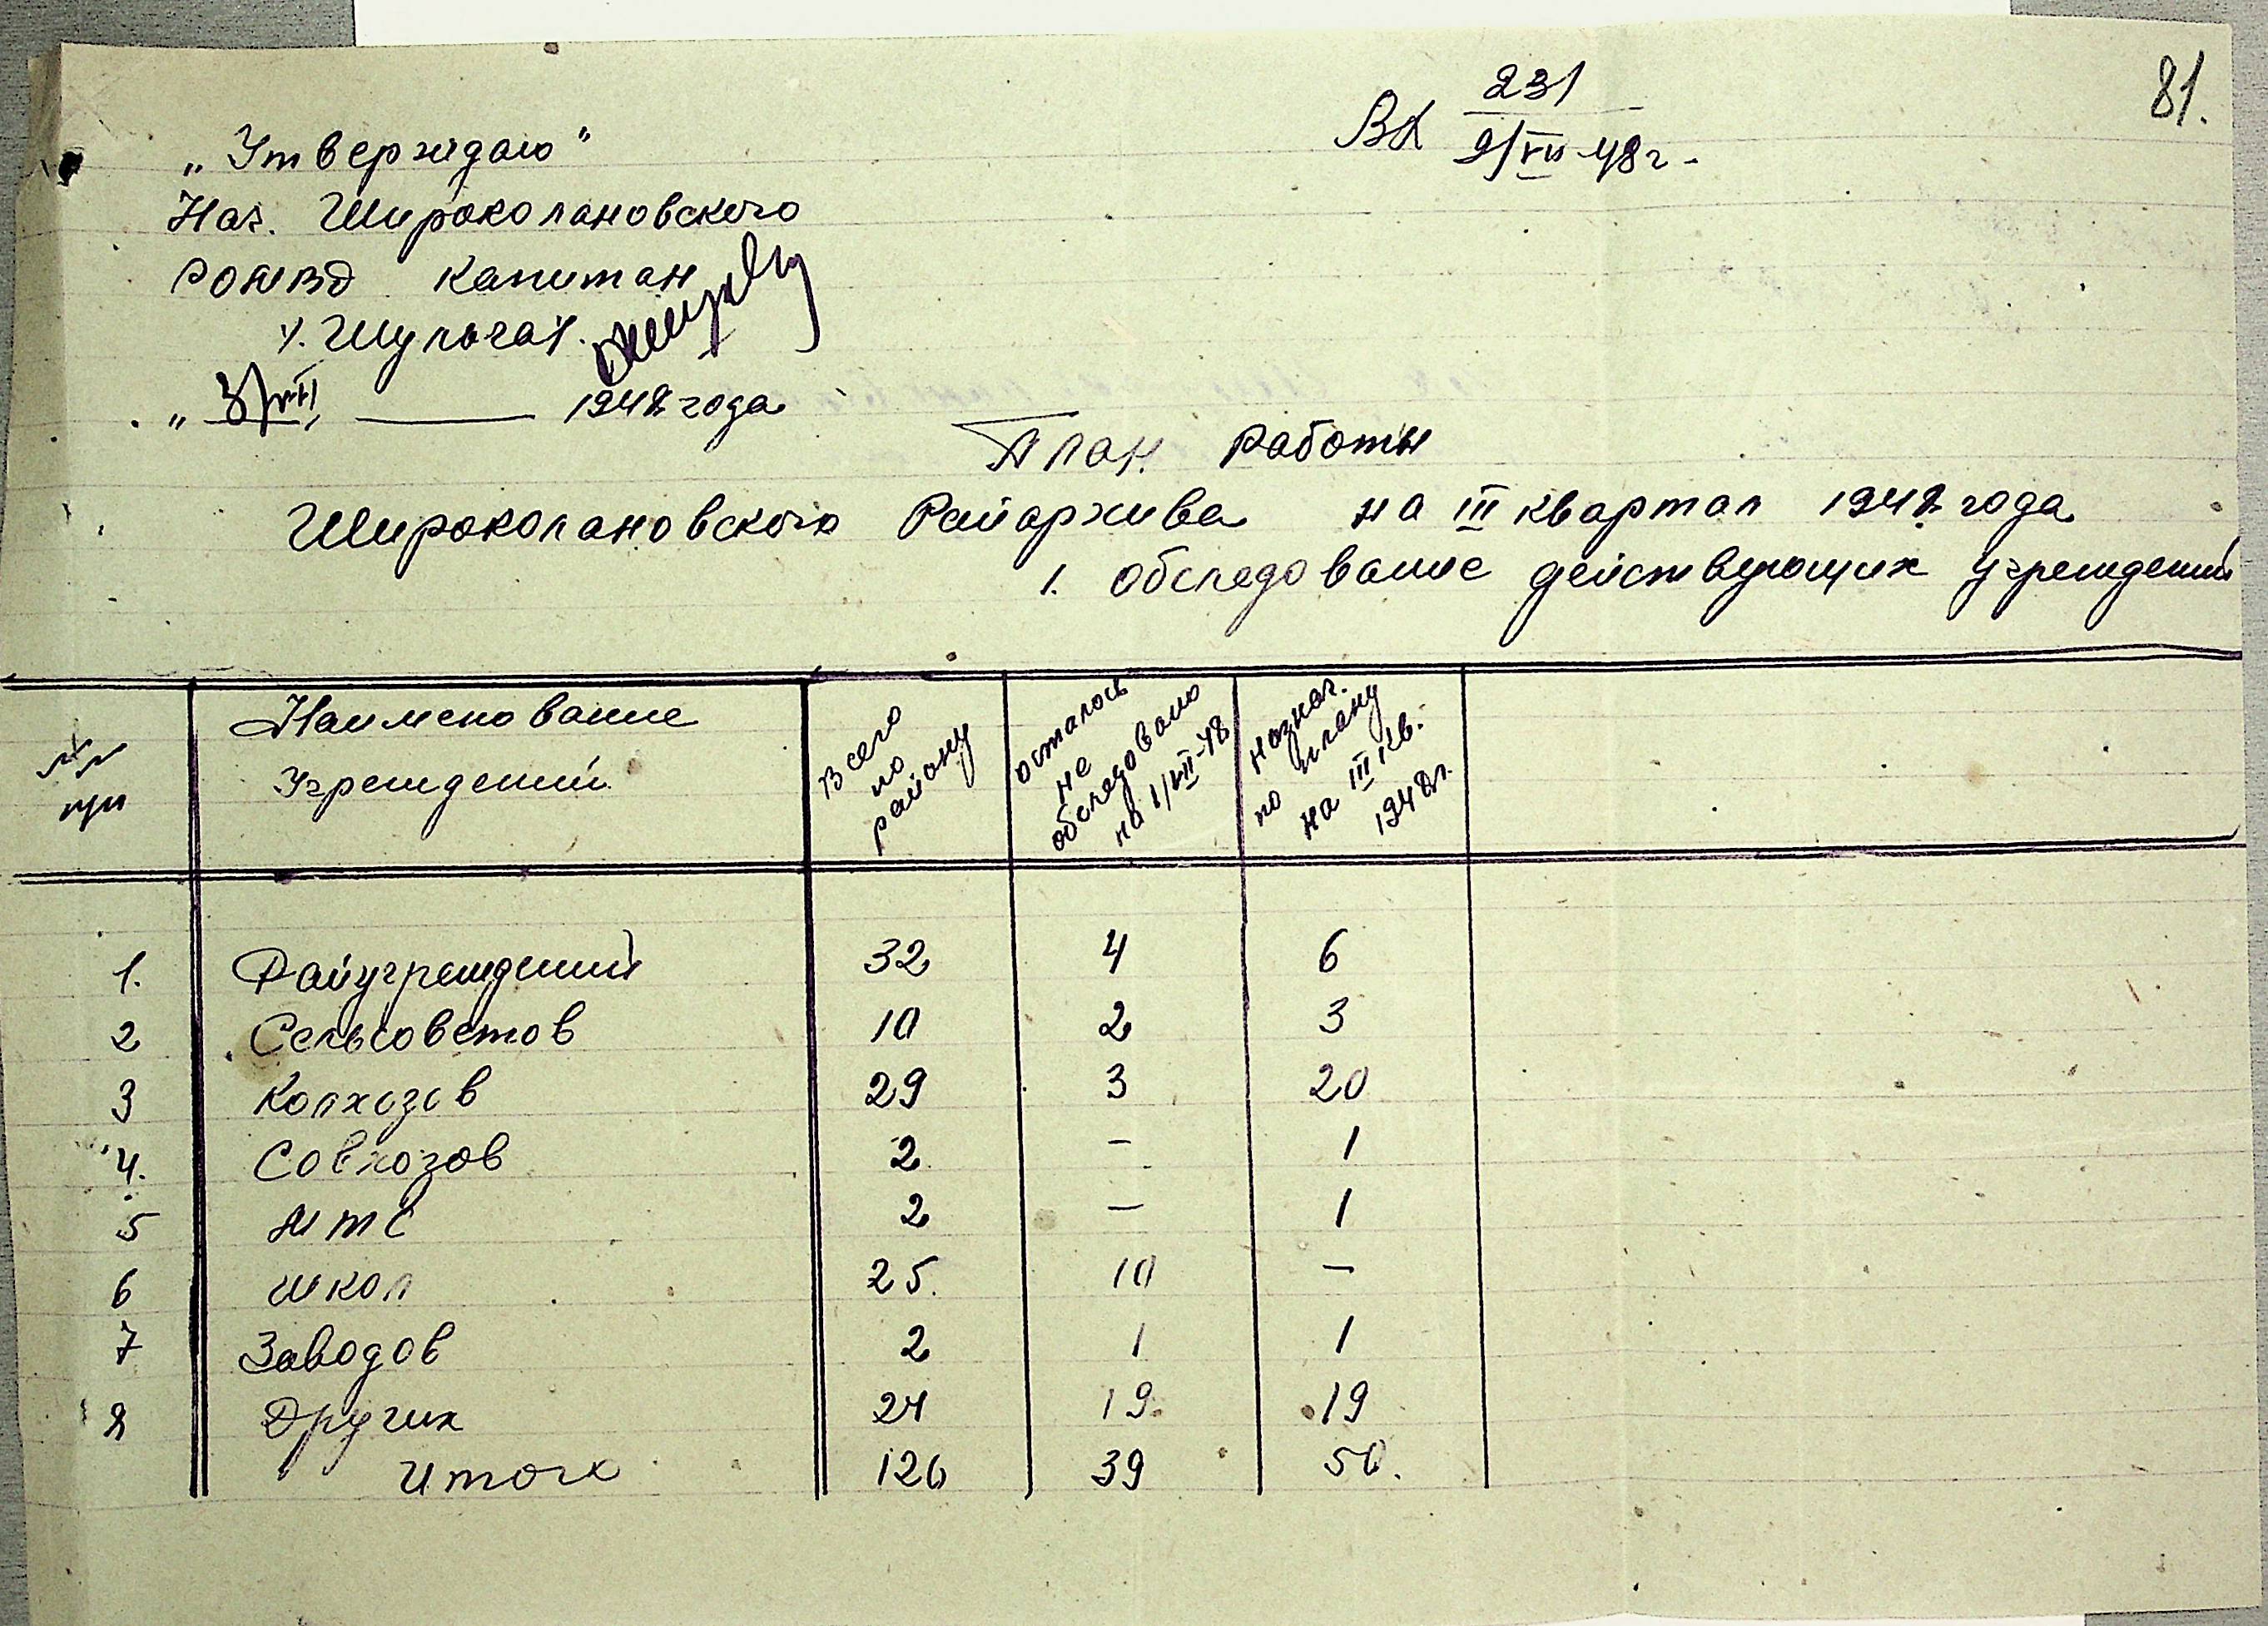 81.
Вх 231
9/VII-48г.
„Утверждаю“
Нач. Широколановского
РОМВД капитан
/Шульга/.
„3/VII“ 1948 года
План работы
Широколановского Райархива на III квартал 1948 года
1. обследование действующих учреждений
№№ пп | Наименование Учреждений | Всего по району | осталось не обследовано на 1/VII-48 | назнач. по плану на III кв. 1948г.
1. Райучреждений 32 4 6
2 Сельсоветов 10 2 3
3 Колхозов 29 3 20
4. Совхозов 2 — 1
5 МТС 2 — 1
6 школ 25. 10 —
7 Заводов 2 1 1
8 Других 24 19 19
Итого 126 39 50.